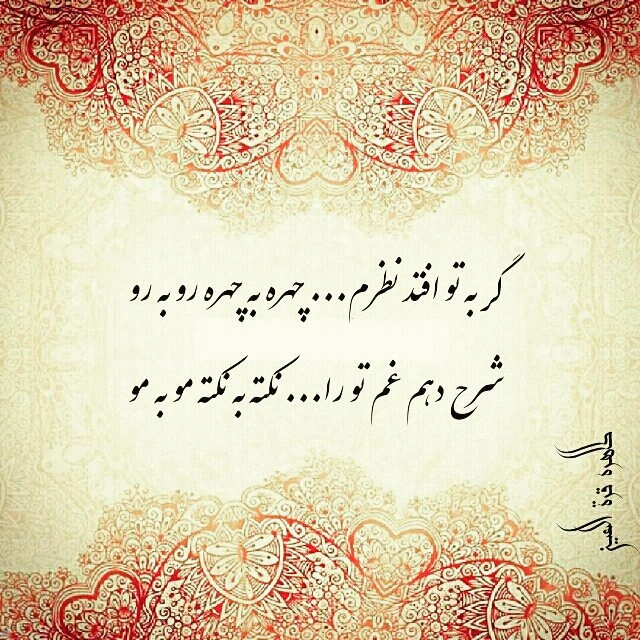 گر به تو افتد نظرم... چهره به چهره رو به رو
شرح دهم غم تو را... نکته به نکته مو به مو
طاهره قرة العین